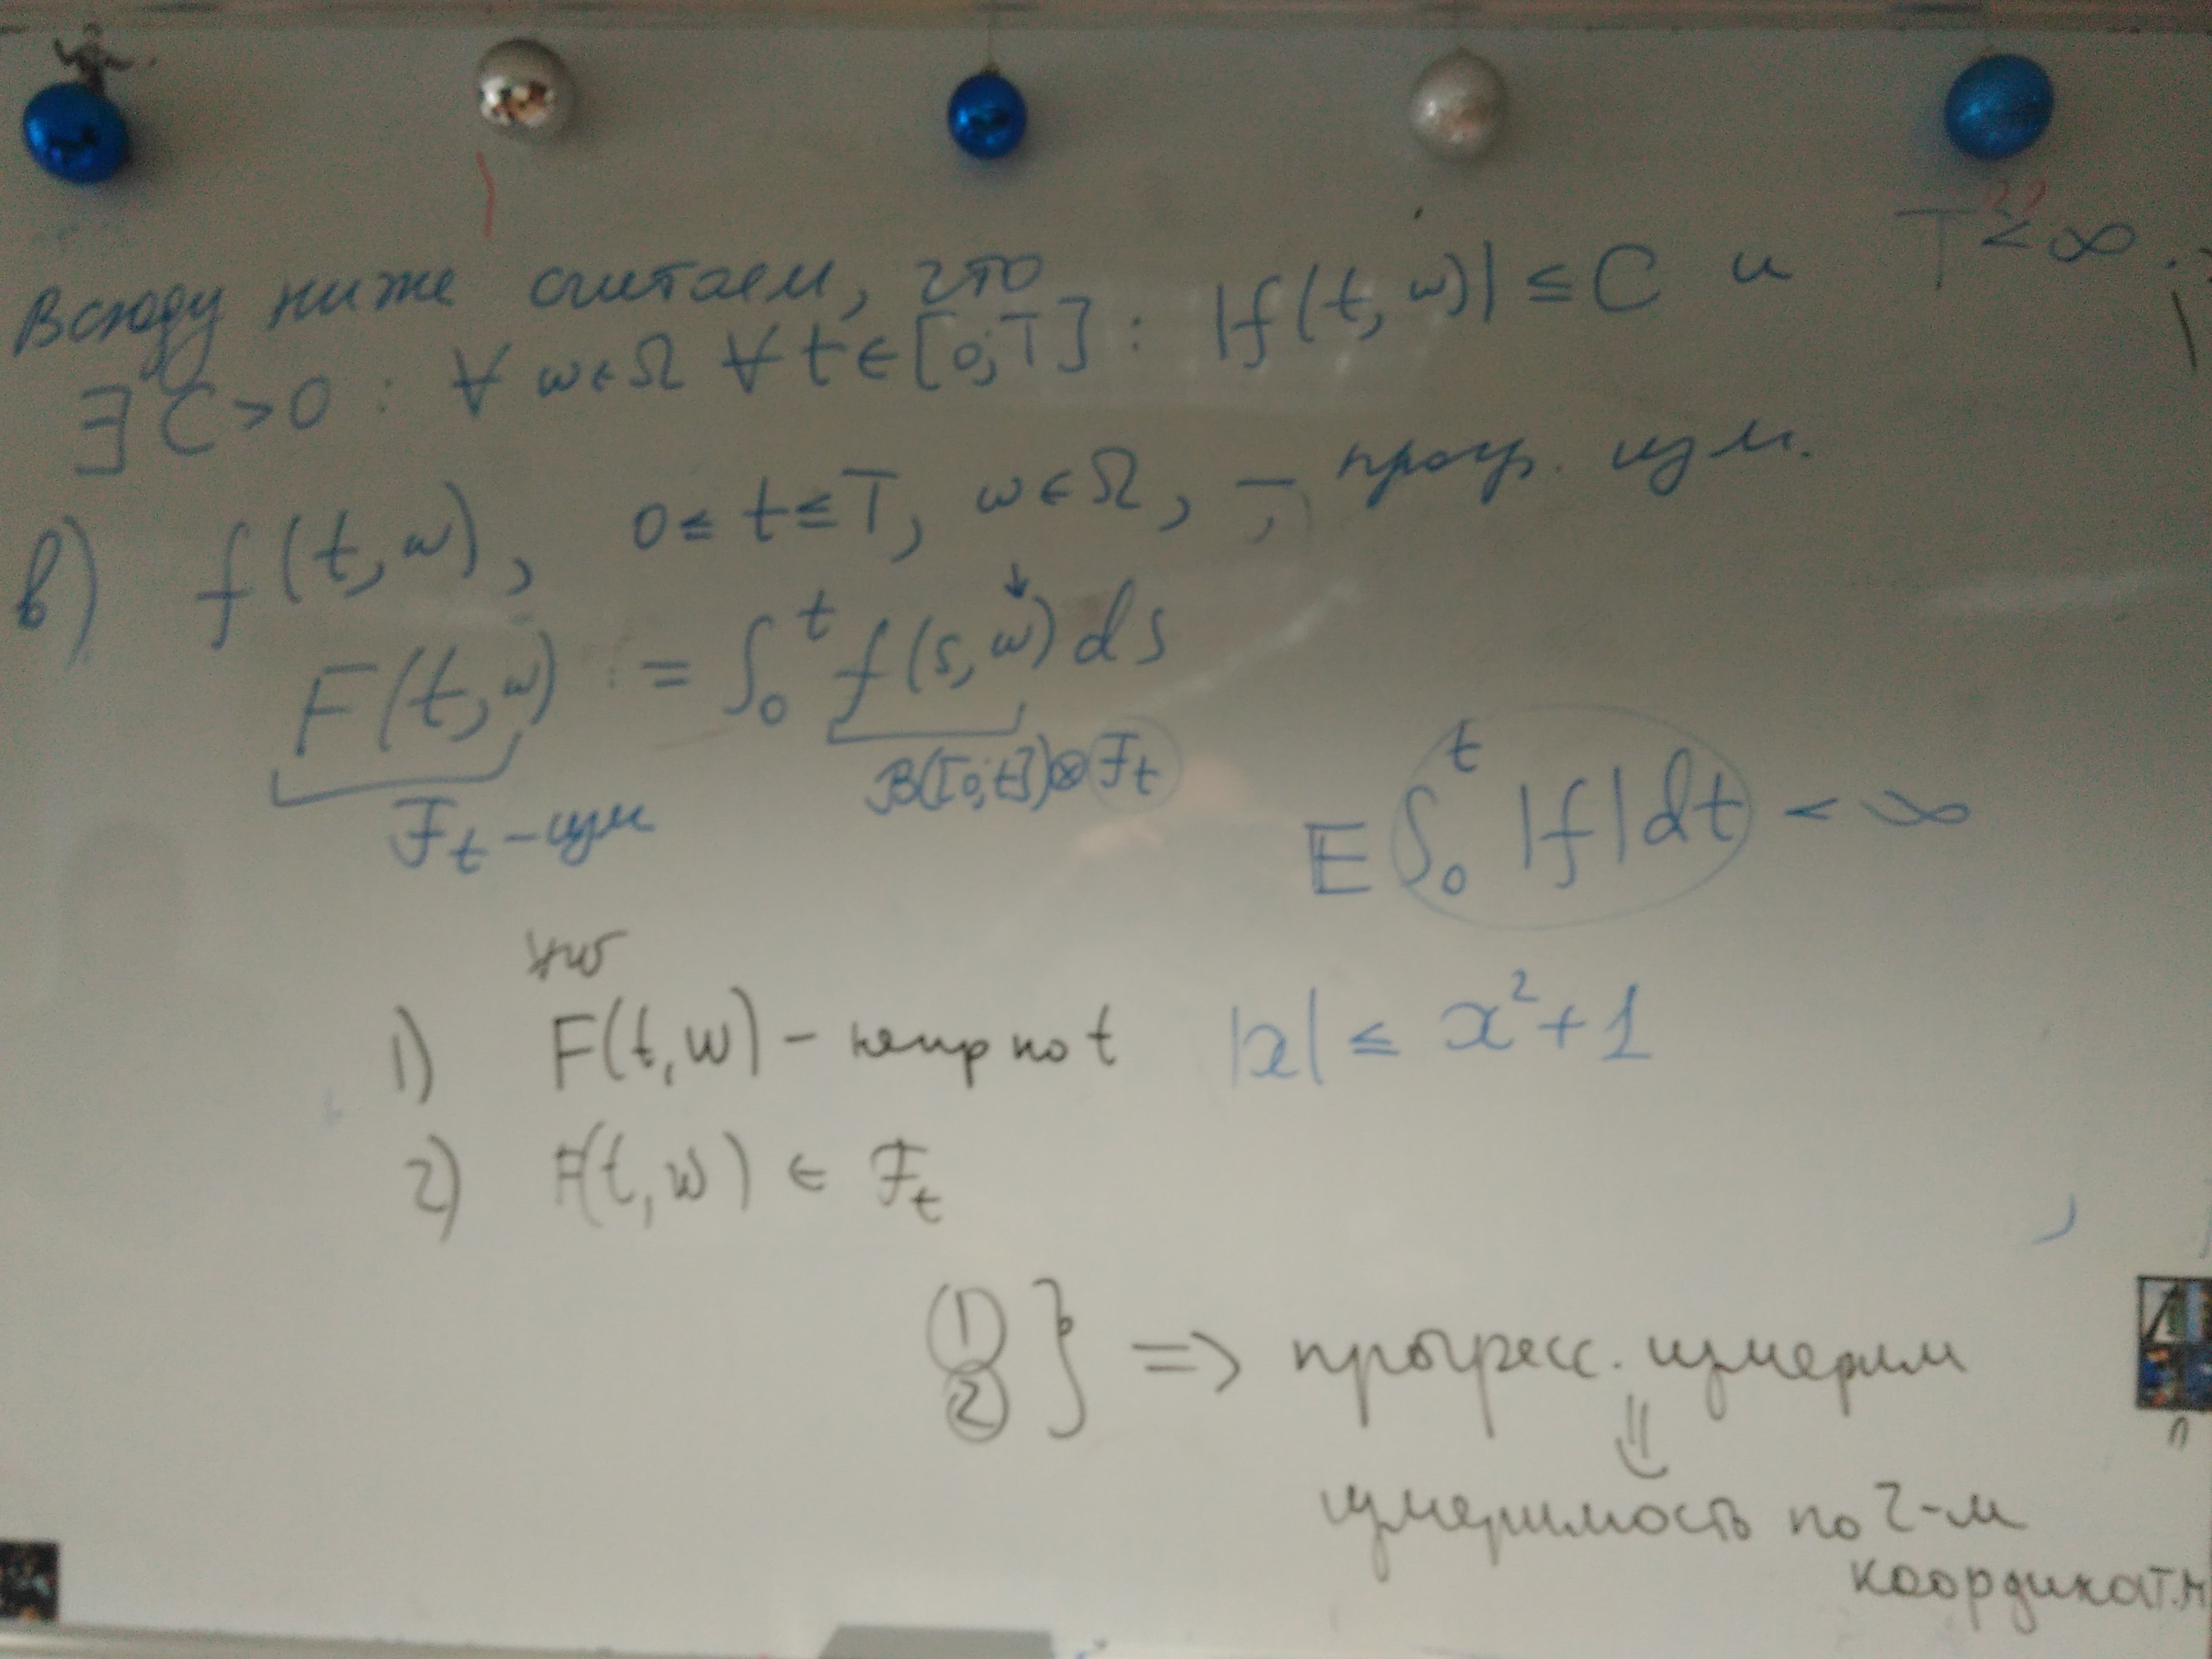 Всюду ниже считаем, что
∃ C > 0 : ∀ ω ∈ Ω ∀ t ∈ [0;T] : |f(t, ω)| ≤ C и T < ∞.
в) f(t, ω), 0 ≤ t ≤ T, ω ∈ Ω, – прогр. изм.
F(t, ω) := ∫₀ᵗ f(s, ω) ds
B([0;t]) ⊗ ℱt
ℱt – изм
E ∫₀ᵗ |f| dt < ∞
∀ω
1) F(t, ω) – непр по t
|x| ≤ x² + 1
2) F(t, ω) ∈ ℱt
① ② } => прогресс. измерим
⇓
измеримость по 2-м
координатам